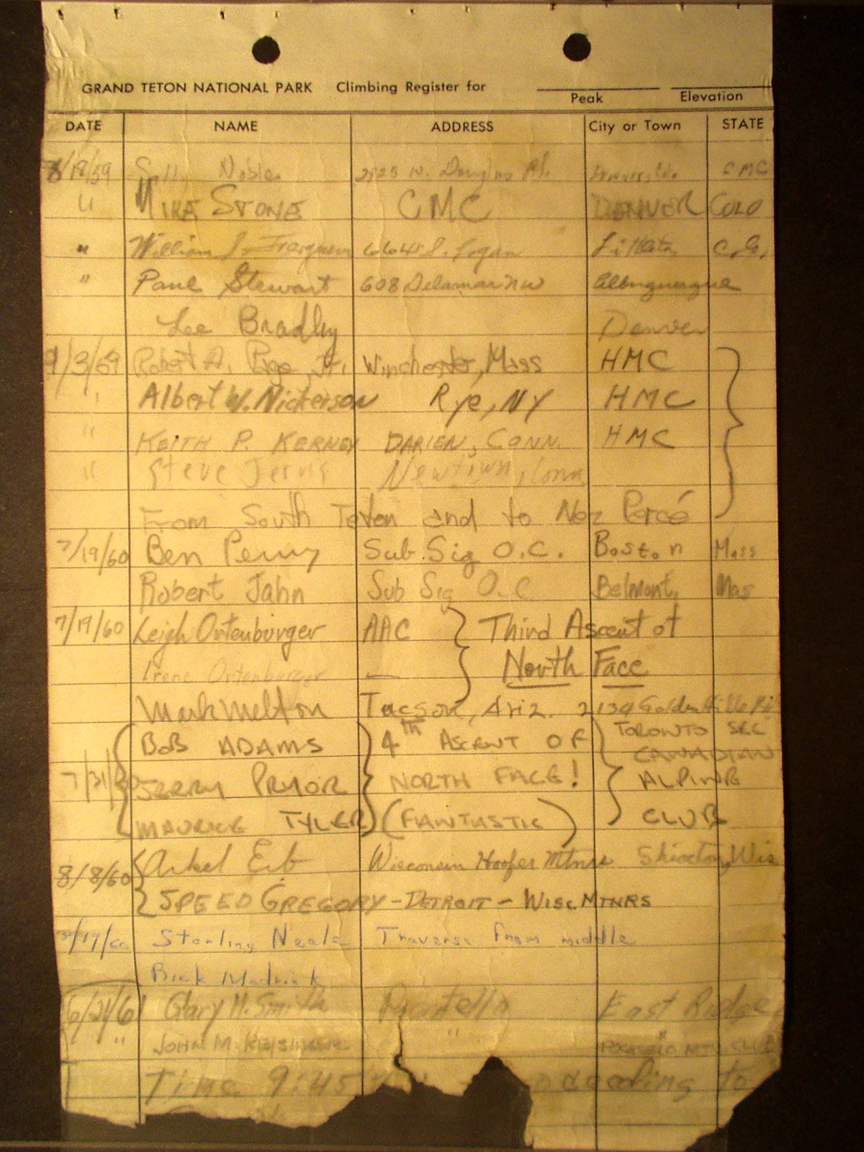 GRAND TETON NATIONAL PARK Climbing Register for
Peak Elevation
DATE NAME ADDRESS City or Town STATE
8/19/59 Noble 2525 W. Douglas Pl. CMC
" MIKE STONE CMC DENVER COLO
" William J. Ferguson 6604 S. Logan Littleton Colo,
" Paul Stewart 608 Delamar NW Albuquerque
Lee Bradley Denver
9/3/59 Robert A. Page, Jr. Winchester, Mass HMC
" Albert W. Nickerson Rye, NY HMC
" KEITH P. KERNEY DARIEN, CONN. HMC
" Steve Jervis Newtown, Conn
From South Teton and to Nez Percé
7/19/60 Ben Perry Sub. Sig O.C. Boston Mass
Robert Jahn Sub Sig O.C Belmont, Mas
7/19/60 Leigh Ortenburger AAC Third Ascent of
Irene Ortenburger — North Face
Mark Melton Tucson, Ariz. 2134
BOB ADAMS 4th ASCENT OF TORONTO SEC
CANADIAN
7/31/ JERRY PRYOR NORTH FACE! ALPINE
MAURICE TYLER (FANTASTIC) CLUB
8/18/60 Arkel Erb Wisconsin Hoofer Mtnrs Shiocton, Wis
SPEED GREGORY - DETROIT - WISC MTNRS
/17/60 Sterling Neale Traverse from middle
Rick Medrick
6/21/61 Gary H. Smith Pocatello East Ridge
" JOHN M. " POCATELLO MT. CLUB
Time 9:45 to